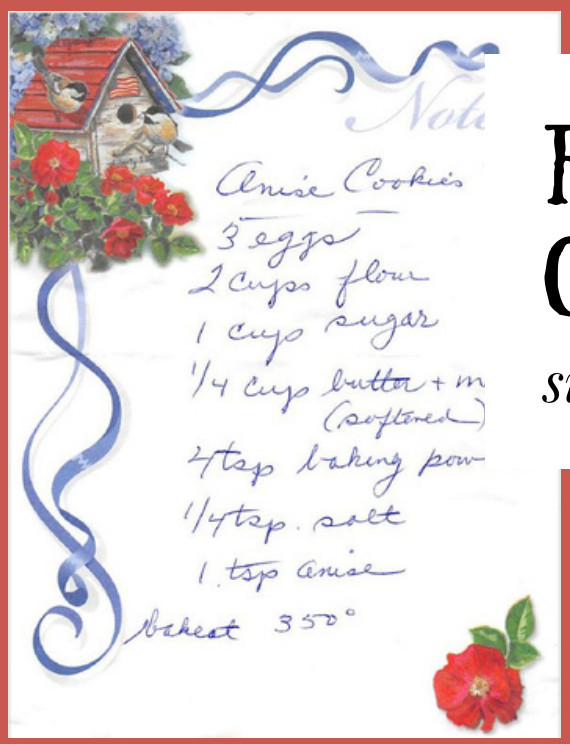 Note
Anise Cookies
3 eggs
2 cups flour
1 cup sugar
1/4 cup butter + m
(softened)
4 tsp baking pow
1/4 tsp. salt
1 tsp anise
bake at 350°